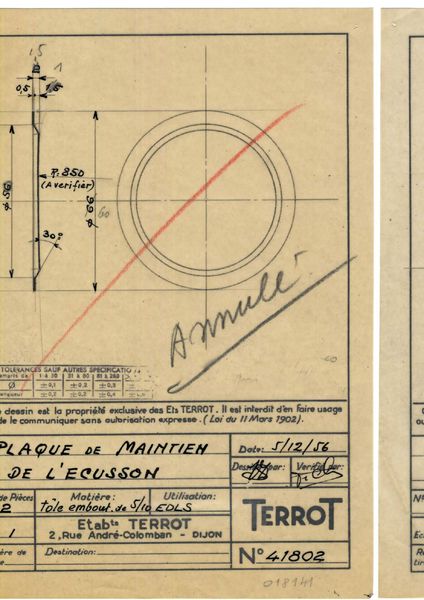 ,5
1
0,5
1,5
ø 56
R.350
(A verifier)
ø 66
60
30°
Annulé
TOLERANCES SAUF AUTRES SPECIFICATIO
1 à 30
31 à 80
81 à 250
Ø
±0,1
±0,2
±0,3
±0,2
±0,3
±0,4
dessin est la propriété exclusive des Ets TERROT. Il est interdit d'en faire usage
de le communiquer sans autorisation expresse. (Loi du 11 Mars 1902).
PLAQUE DE MAINTIEN
DE L'ECUSSON
Date: 5/12/56
Dessiné par:
Vérifié par:
de Pièces
2
Matière:
Tôle embout. de 5/10
Utilisation:
EDLS
1
Etabts TERROT
2, Rue André-Colomban - DIJON
TERROT
Destination:
N° 41802
018141